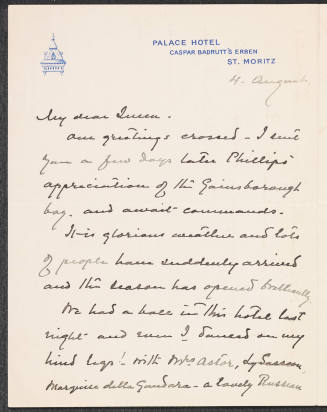 PALACE HOTEL
CASPAR BADRUTT'S ERBEN
ST. MORITZ
4. August.
My dear Queen.
Our greetings crossed – I sent
you a few days later Phillips'
appreciation of the Gainsborough
boy. and await commands.
It is glorious weather and lots
of people have suddenly arrived
and the season has opened brilliantly.
We had a ball in this hotel last
night and even I danced on my
hind legs! – with Mrs Astor, Ly Sassoon,
Marquise della Gandara – a lovely Russian